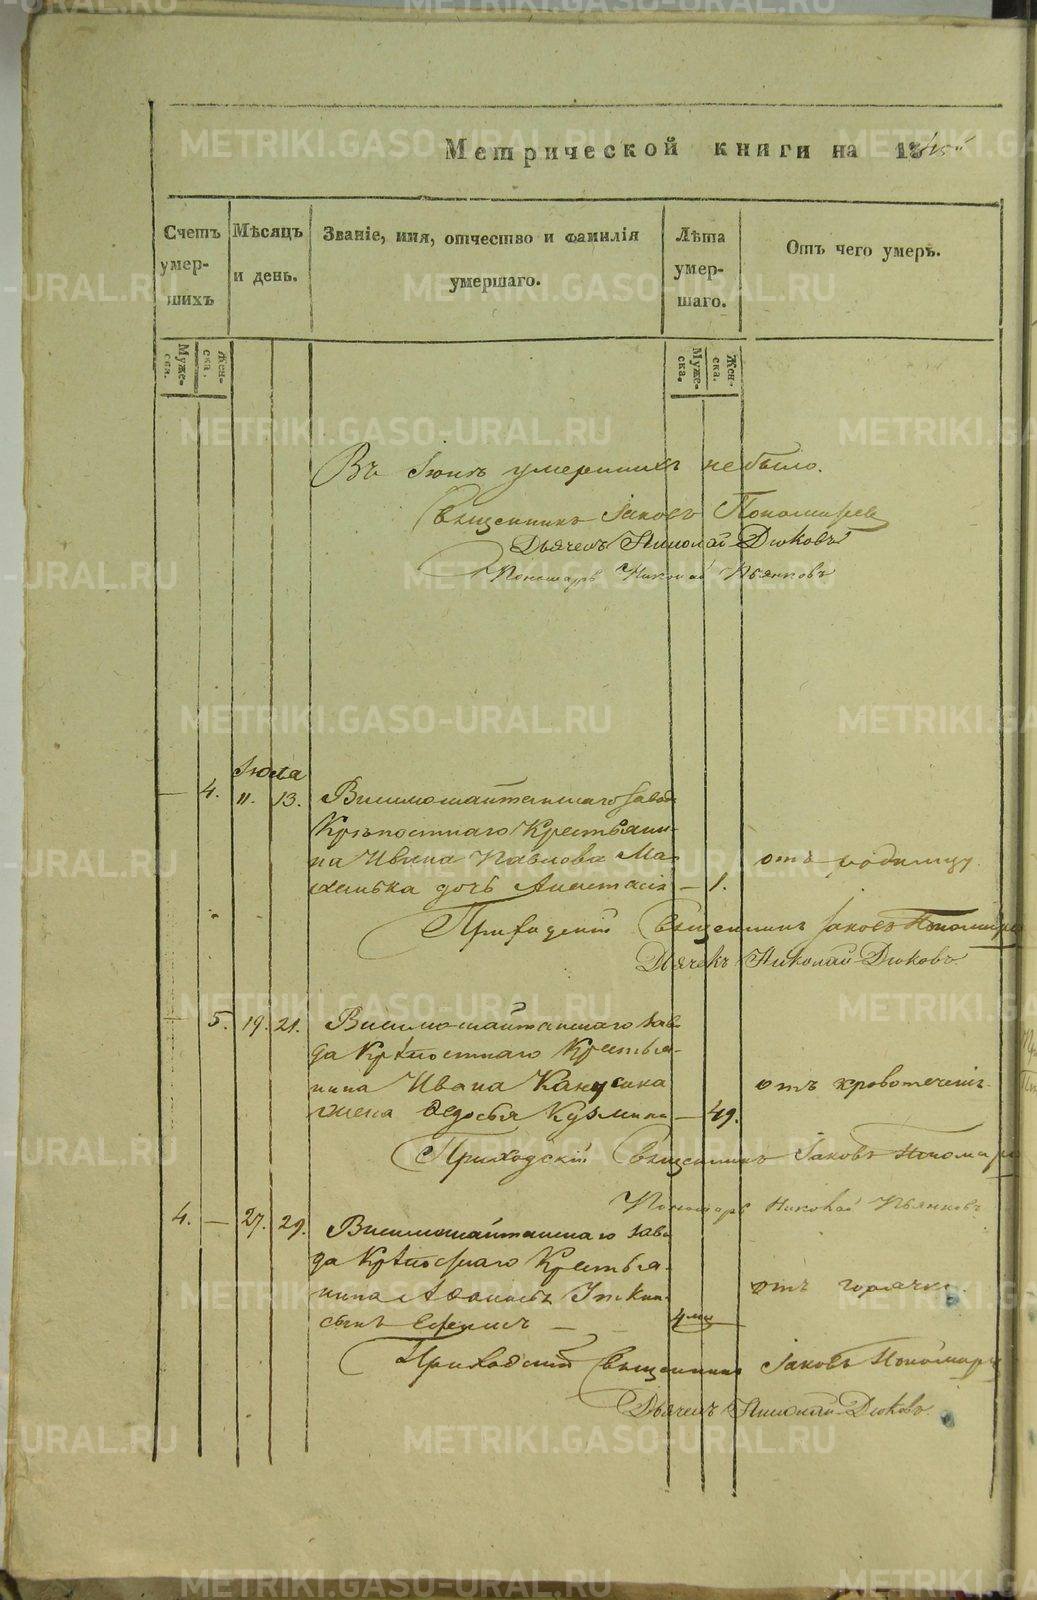 Метрической книги на 18
Счетъ умер- шихъ
Мѣсяцъ и день.
Званіе, имя, отчество и фамилія умершаго.
Лѣта умер- шаго.
Отъ чего умеръ.
Муже- ска.
Жен- ска.
Муже- ска.
Жен- ска.
Въ Іюнѣ умершихъ небыло.
Священникъ Іаковъ Пономаревъ
Дьячекъ Николай Дюковъ
Пономарь Николай Пьянковъ
Іюля
4. 11. 13. Висимошайтанскаго завод
Крѣпостнаго Крестьяни-
на Ивана Павлова Ма-
дочь Анастасія 1. отъ родимцу.
Приходскій Священникъ Іаковъ Пономаре
Дьячекъ Николай Дюковъ
5. 19. 21. Висимошайтанскаго заво-
да Крѣпостнаго Крестья-
нина Ивана отъ кровотеченія
жена Ѳедосья Кузмина 49.
Приходскій Священникъ Іаковъ Пономаре
Пономарь Николай Пьянковъ
4. 27. 29. Висимошайтанскаго заво-
да Крѣпостнаго Крестья-
нина Уткин отъ горячки
сынъ Ефимъ 4 ме
Приходскій Священникъ Іаковъ Пономаре
Дьячекъ Николай Дюковъ
METRIKI.GASO-URAL.RU